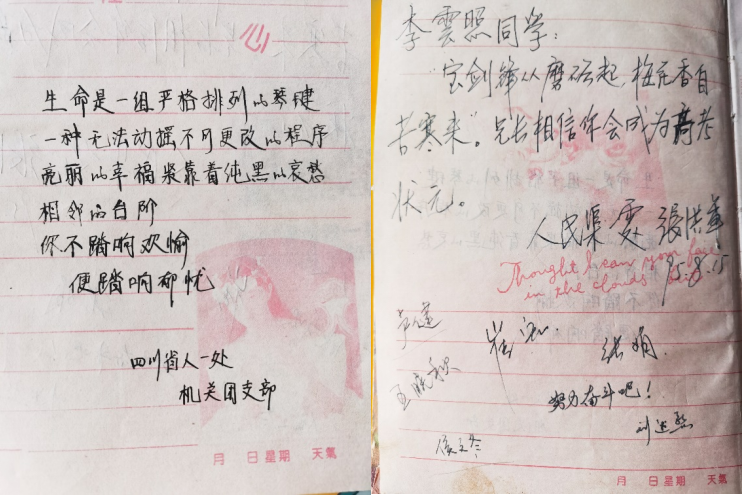 心
生命是一组严格排列的琴键
一种无法动摇不可更改的程序
亮丽的幸福紧靠着纯黑的哀愁
相邻的台阶
你不踏响欢愉
便踏响郁忧
四川省人一处
机关团支部
月 日星期 天氣
李雲照同学:
"宝剑锋从磨砺起,梅花香自
苦寒来"。兄长相信你会成为高考
状元。
人民渠 处 張洪革
95.8.15
Thought I can your face
in the clouds
张娟
努力奋斗吧!
月 日星期 天氣